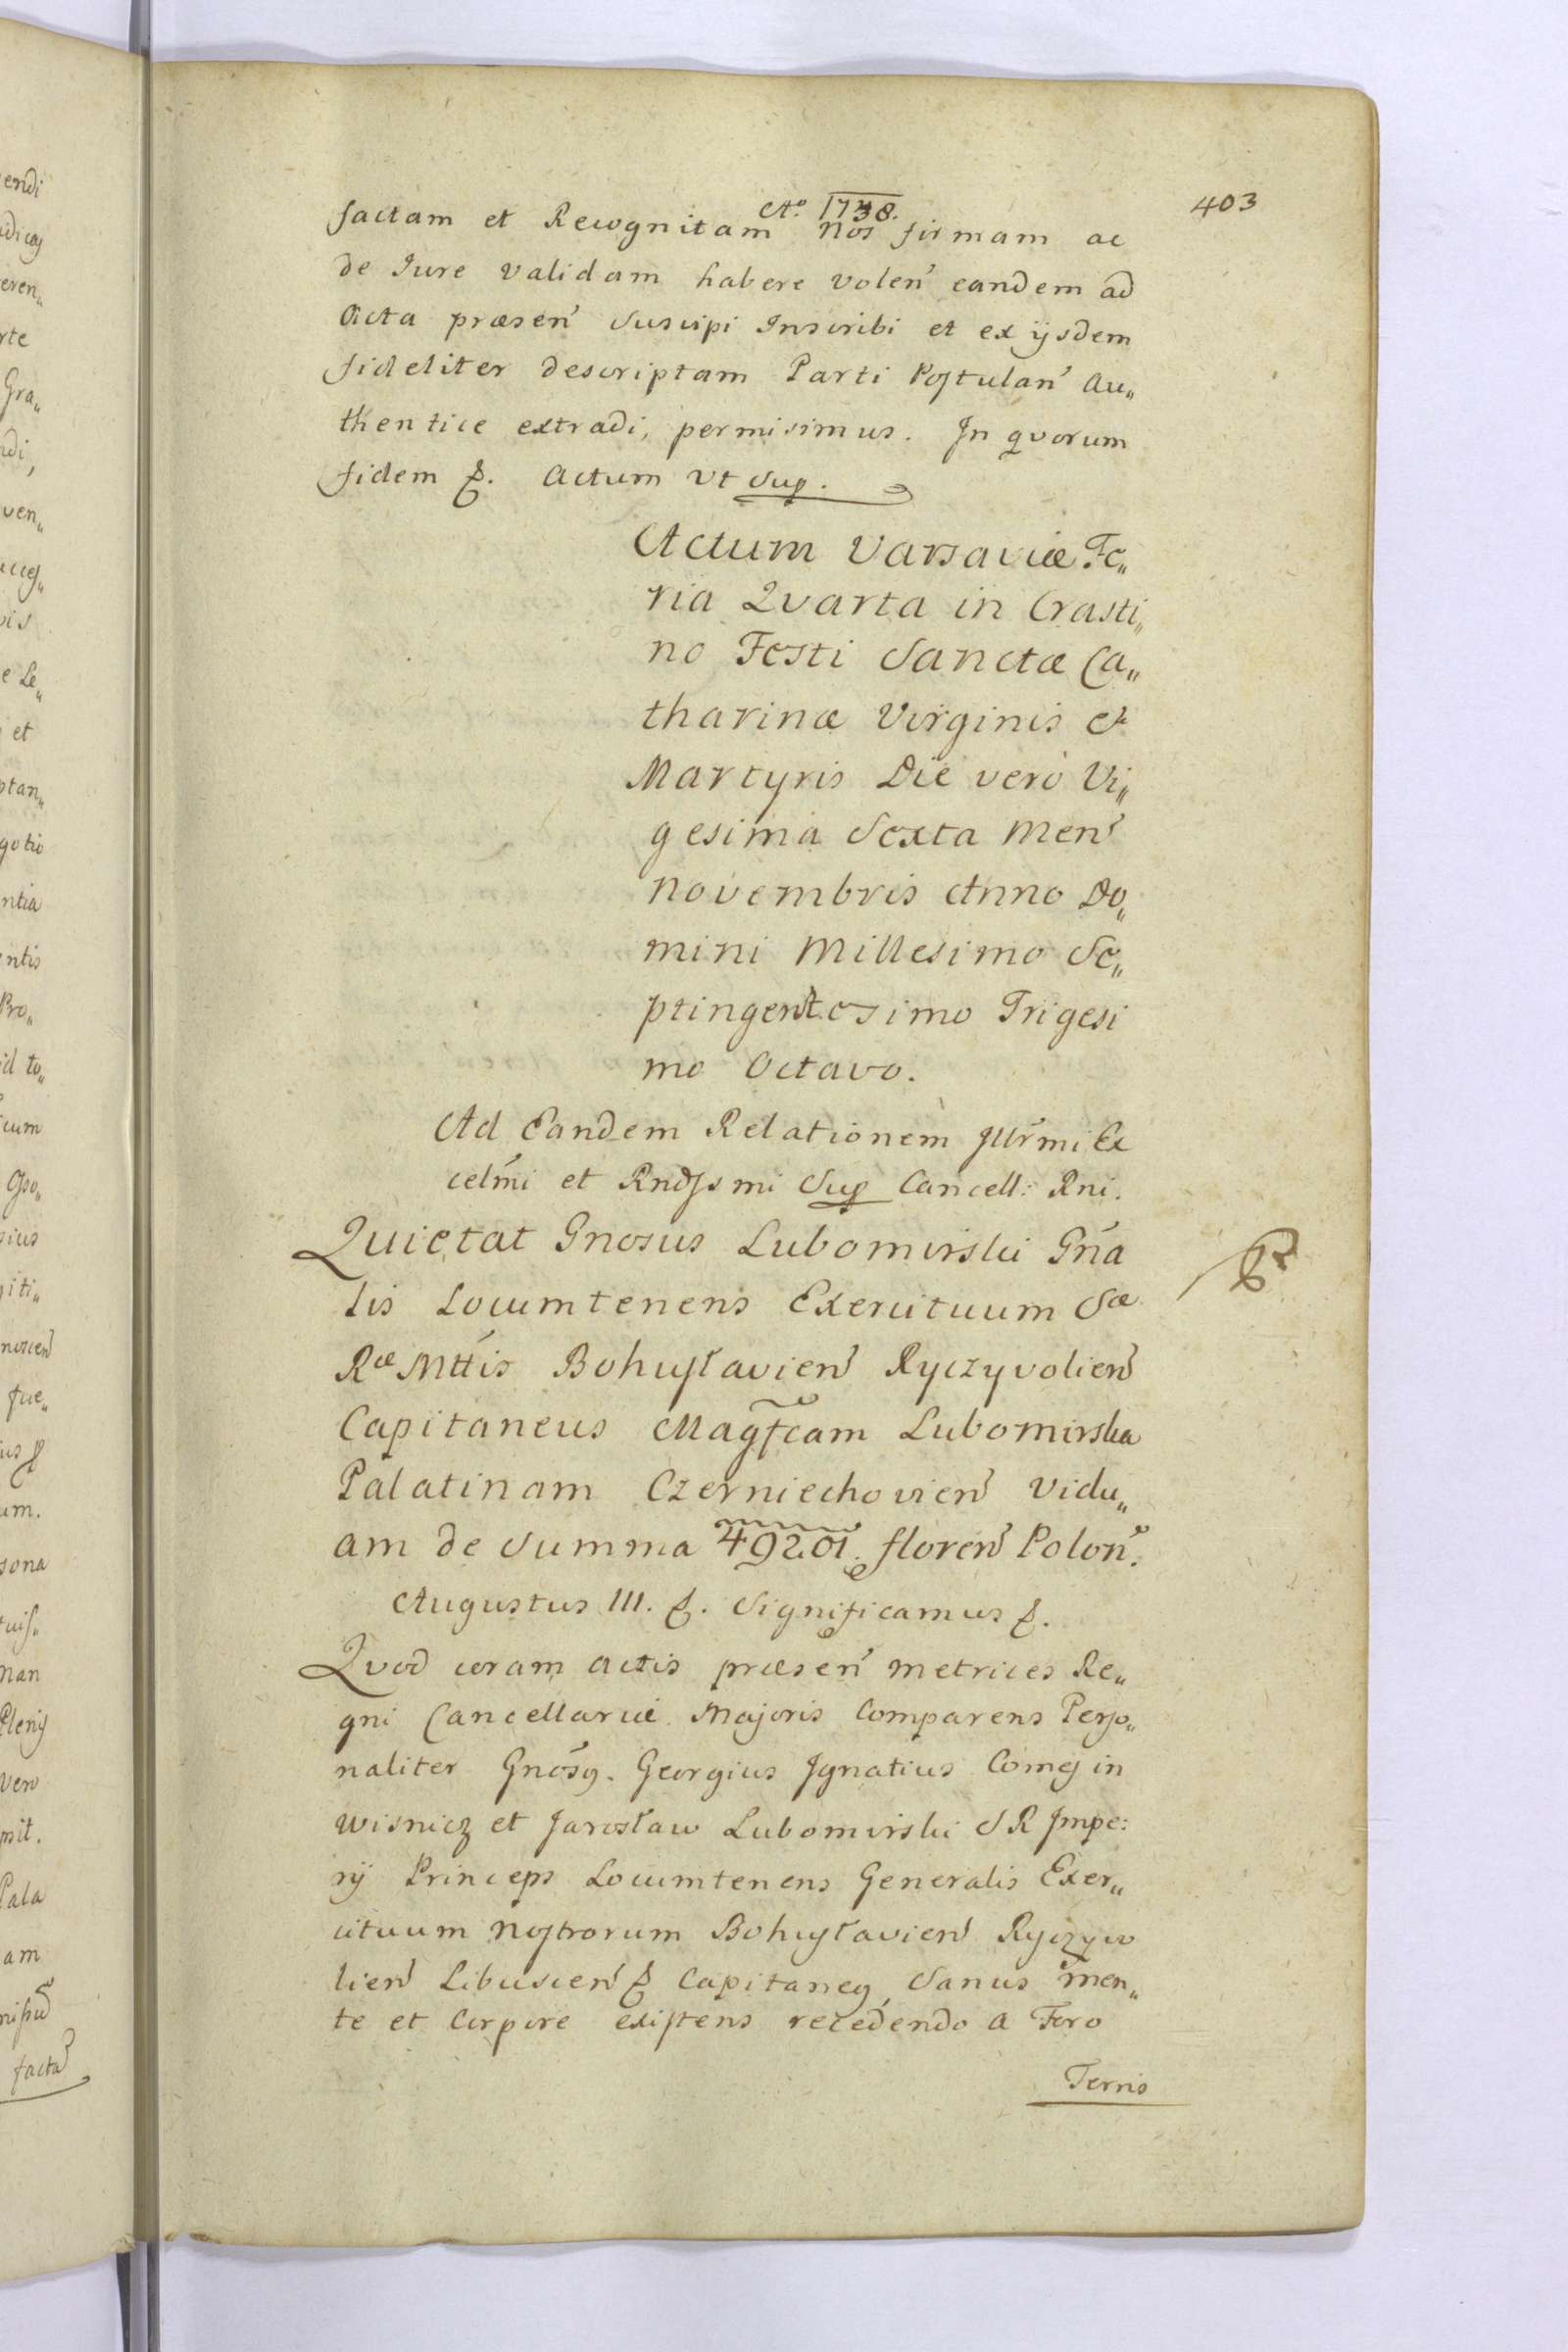 Ao. 1738.
403
factam et Recognitam Nos firmam ac
de Jure validam habere volen̄ eandem ad
Acta præsen̄ Suscipi Inscribi et ex ijsdem
fideliter descriptam Parti Postulan̄ Au„
thentice extradi, permisimus. In qvorum
fidem &. Actum vt Sup.
Actum Varsaviæ Fe„
ria Qvarta in Crasti„
no Festi Sanctæ Ca„
tharinæ Virginis et
Martyris Die verò Vi„
gesima Sexta Men̄
Novembris Anno Do„
mini Millesimo Se„
ptingentesimo Trigesi
mo Octavo.
Ad Eandem Relationem Illr̄mi Ex
cell̄mi et Rndssmi Sup Cancell: Rni.
Quietat Gnosus Lubomirski Gn̄a
lis Locumtenens Exercituum Sæ
Ræ Mttis Bohusłavien̄ Ryczyvolien̄
Capitaneus Magfcam Lubomirska
Palatinam Czerniechovien̄ Vidu„
am de Summa 49201. floren̄ Polon̄.
Augustus III. &. Significamus &.
Qvod coram Actis præsen̄ Metrices Re„
gni Cancellariæ Majoris Comparens Perso„
naliter Gnōsq. Georgius Ignatius Comes in
Wisnicz et Jarosław Lubomirski S R Impe:
rij Princeps Locumtenens Generalis Exer„
cituum Nostrorum Bohusłavien̄ Ryczyvo
lien̄ Libuscien̄ & Capitaneq, Sanus men„
te et Corpore existens recedendo a Foro
Terris
endi
rte
Gra„
ndi,
ven„
e Le„
et
ptan„
gotio
ntia
entis
Pro„
id to„
cum
giti„
fue„
um.
sona
nan
Plenij
vero
mit.
Pala
am
facta